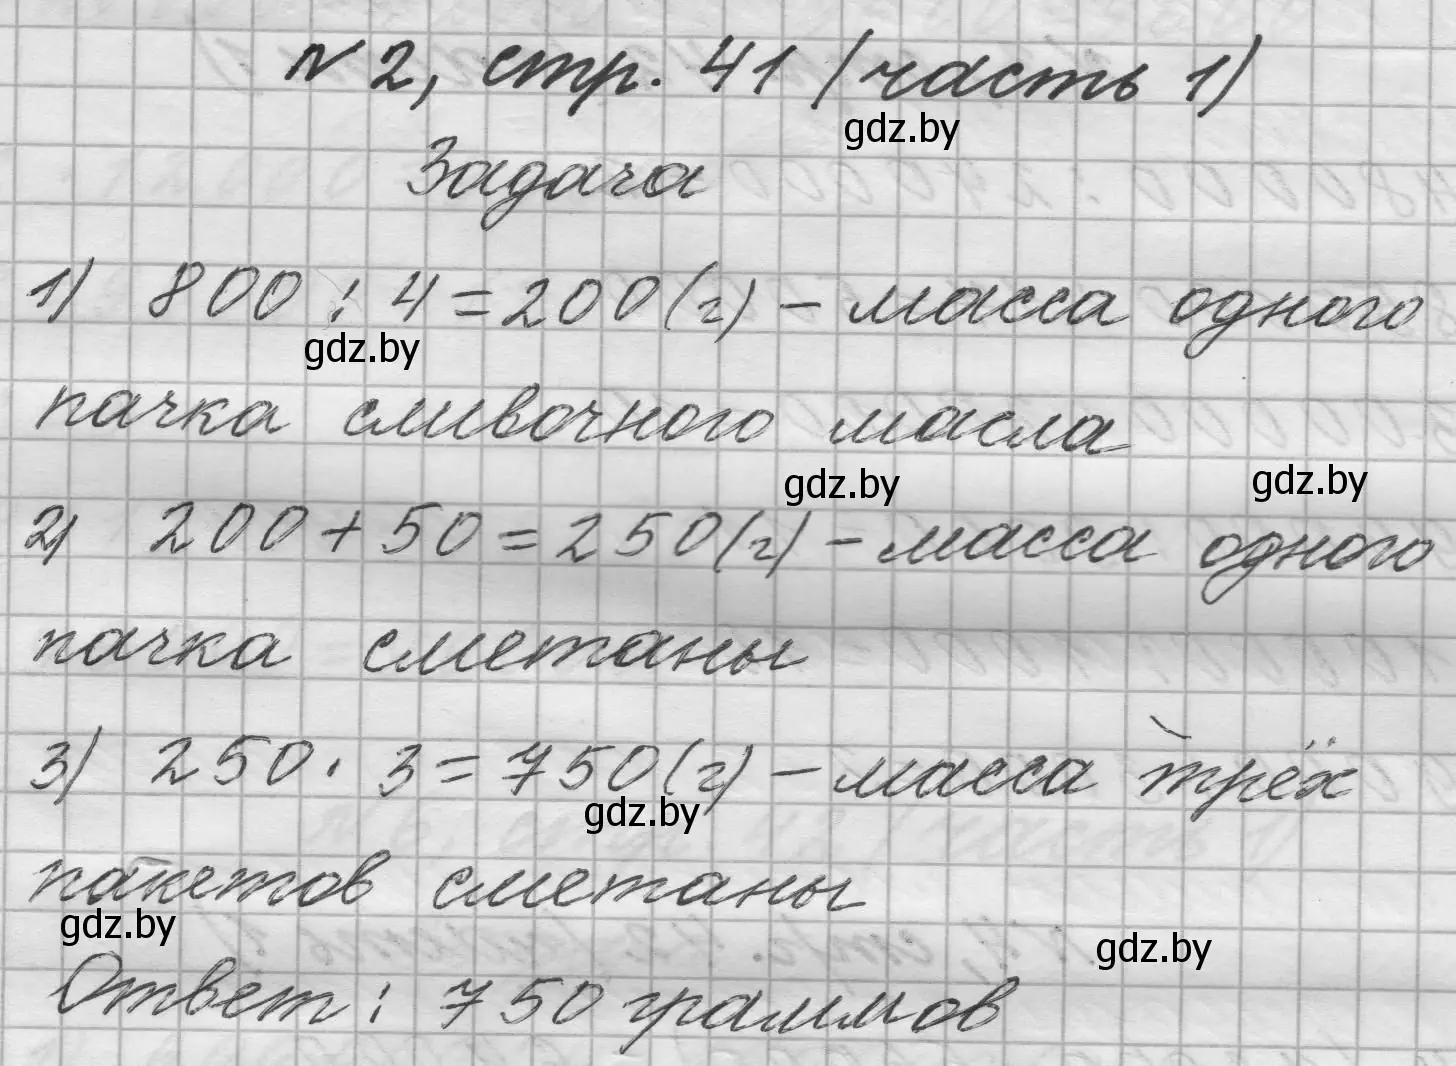 № 2, стр. 41 (часть 1)
gdz.by
Задача
1) 800 : 4 = 200 (г) – масса одного
gdz.by
пачка сливочного масла
gdz.by gdz.by
2) 200 + 50 = 250 (г) – масса одного
пачка сметаны
3) 250 · 3 = 750 (г) – масса трёх
gdz.by
пакетов сметаны
gdz.by
gdz.by
Ответ : 750 граммов